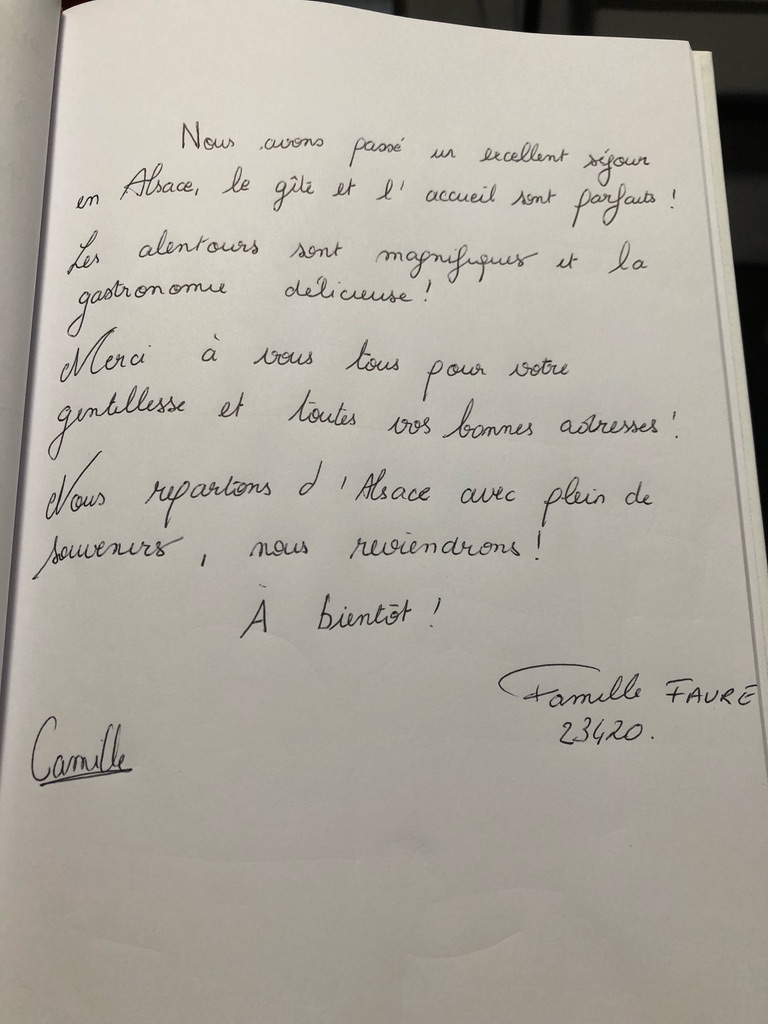 Nous avons passé un excellent séjour
en Alsace, le gîte et l'accueil sont parfaits !
Les alentours sont magnifiques et la
gastronomie délicieuse !
Merci à vous tous pour votre
gentillesse et toutes vos bonnes adresses !
Nous repartons d'Alsace avec plein de
souvenirs, nous reviendrons !
À bientôt !
Famille FAURE
23420.
Camille